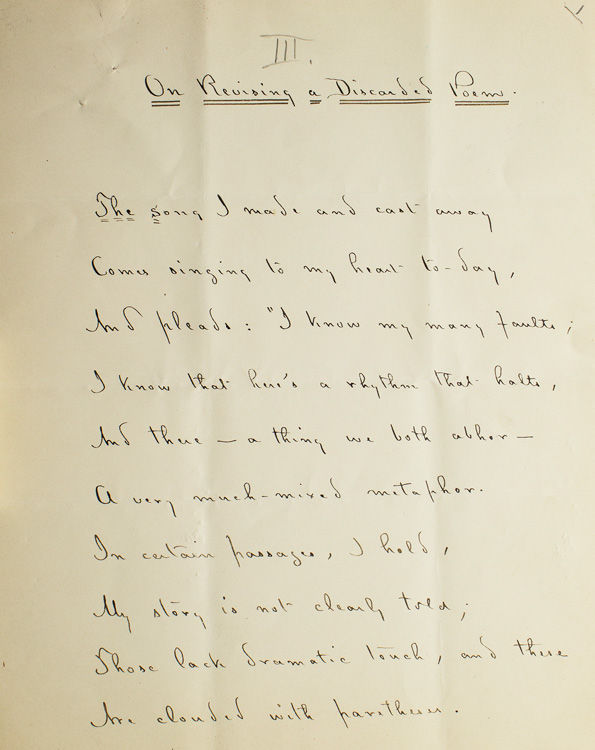 III.
On Revising a Discarded Poem.
The Song I made and cast away
Comes singing to my heart to-day,
And pleads: "I know my many faults;
I know that here's a rhythm that halts,
And there — a thing we both abhor —
A very much-mixed metaphor.
In certain passages, I hold,
My story is not clearly told;
Those lack dramatic touch, and these
Are clouded with parentheses.